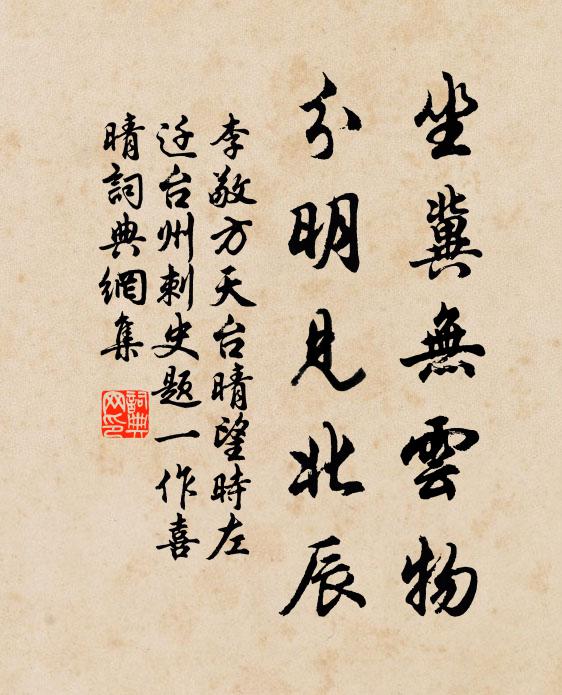 坐冀無雲物
分明見北辰
李敬方天台晴望時左
迁台州刺史题一作喜
晴詞典網集
詞典
网印